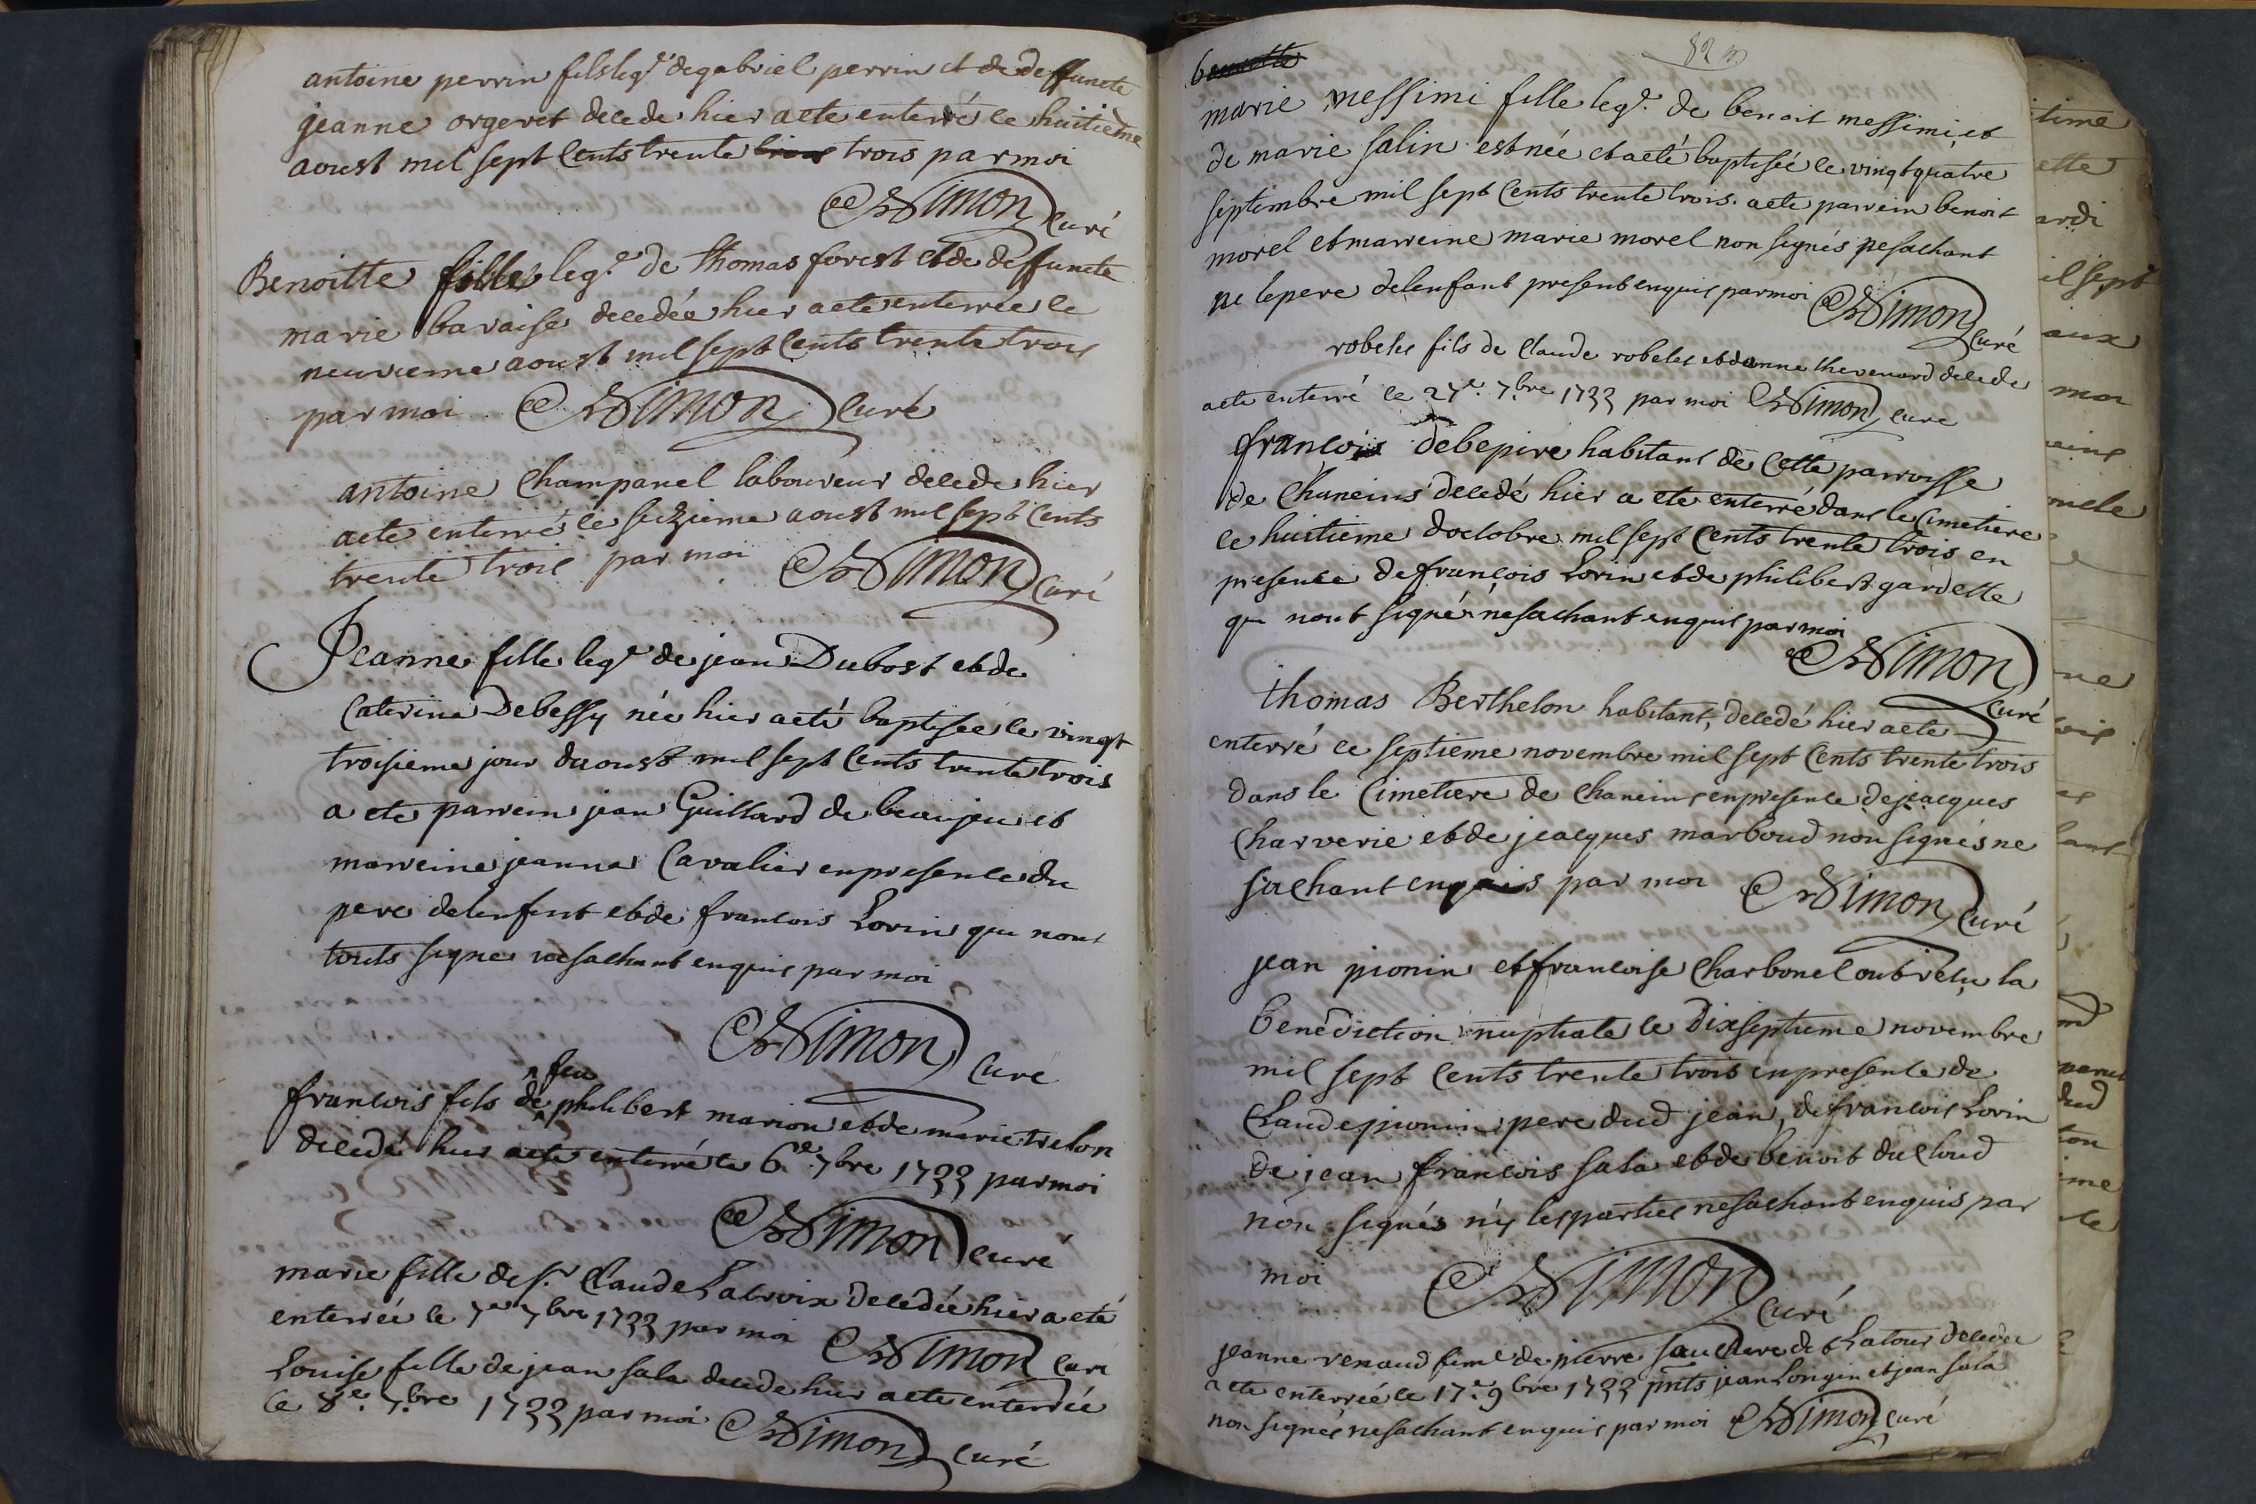 antoine perrin fils leg.e de gabriel perrin et de deffuncte
jeanne orgeret decede hier a ete enterré le huitieme
aoust mil sept Cents trente trois trois par moi
Simon Curé
Benoitte fille leg.e de thomas forest et de deffuncte
marie baraise decedée hier a ete enterrée le
neuvieme aoust mil sept Cents trente trois
par moi Simon Curé
antoine Champanel laboureur decede hier
a ete enterré le seizieme aoust mil sept Cents
trente trois par moi Simon Curé
Jeanne fille leg.e de jean Dubost et de
Caterine Debessy née hier a eté baptisée le vingt
troisieme jour daoust mil sept Cents trente trois
a ete parrein jean Guillard de beaujeu et
marreine jeanne Cavalier en presence du
pere de lenfent et de francois Lorin qui nont
touts signe ne sachant enquis par moi
Simon Curé
feu
francois fils de philibert marion et de marie trelon
decedé hier a ete enterré le 6.e 7bre 1733 par moi
Simon Curé
marie fille de s.r Claude Lacroix decedée hier a eté
enterrée le 7e 7bre 1733 par moi Simon Curé
Louise fille de jean sala decede hier a ete enterrée
le 8.e 7.bre 1733 par moi Simon Curé
benoitte
marie messimi fille leg.e de benoit messimi, et
de marie salin est née et a eté baptisée le vingt quatre
septembre mil sept Cents trente trois. a ete parrein benoit
morel et marreine marie morel non signés ne sachant
ne le pere de lenfant present enquis par moi Simon Curé
robeles fils de Claude robeles et danne thevenard decede
a ete enterré le 27.e 7.bre 1733 par moi Simon Cure
francois debepire habitant de Cette parroisse
de Chaneins decedé hier a ete enterré dans le Cimetiere
le huitieme doctobre mil sept Cents trente trois en
presence de francois Lorin et de philibert gardette
qui nont signés ne sachant enquis par moi
Simon Curé
thomas Berthelon habitant, decedé hier a ete
enterré le septieme novembre mil sept Cents trente trois
dans le Cimetiere de Chaneins en presence de jacques
Charverie et de jeacques marboud non signés ne
sachant enquis par moi Simon Curé
jean pionin et francoise Charbonel ont recu la
benediction nuptiale le dixseptieme novembre
mil sept Cents trente trois en presence de
Claude pionin pere dud jean, de francois Lorin
de jean francois sala et de benoit du Cloud
non signés ny les parties ne sachant enquis par
moi Simon Curé
jeanne renaud fem.e de pierre sauclere dit Latour decedee
a ete enterrée le 17.e 9bre 1733 pnts jean Longin et jean sala
non signés ne sachant enquis par moi Simon Curé